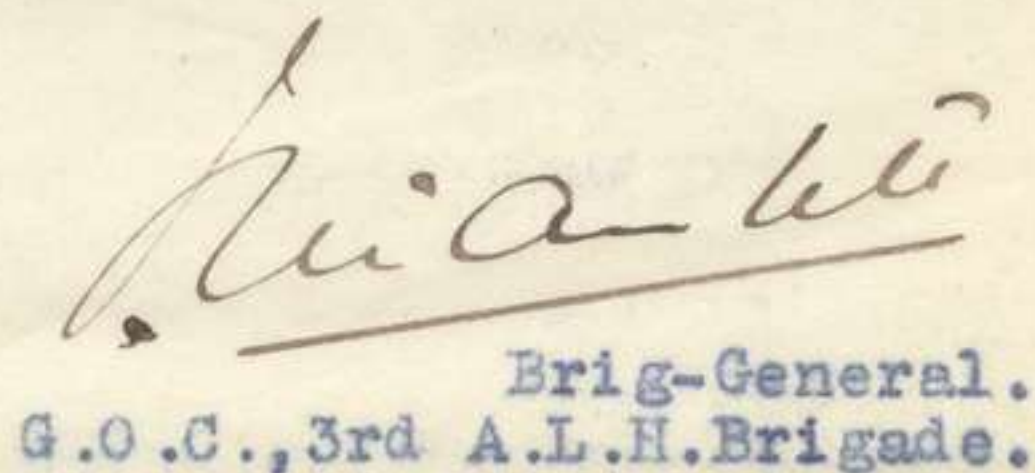 Brig-General.
G.O.C.,3rd A.L.H.Brigade.